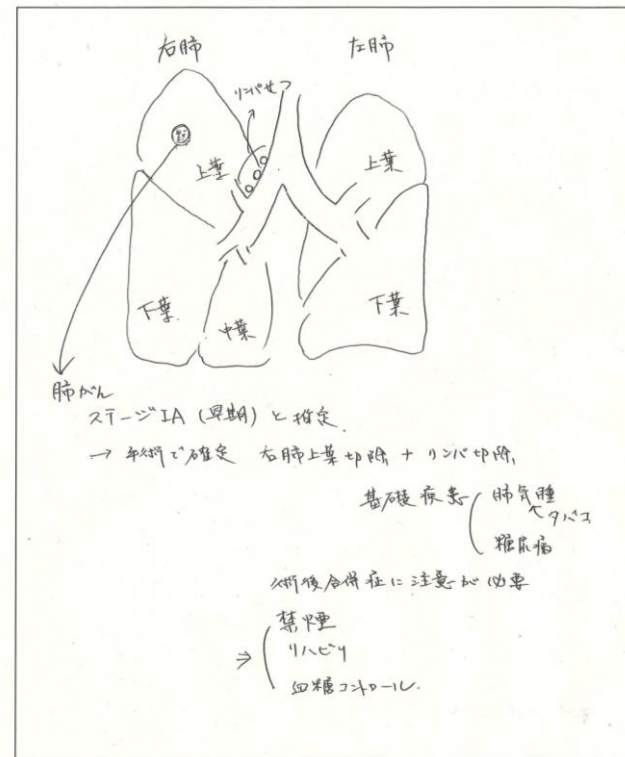 右肺
左肺
リンパせつ
上葉
上葉
下葉
中葉
下葉
肺がん
ステージIA (早期) と推定
→ 手術で確定 右肺上葉切除 + リンパ切除
基礎疾患 肺気腫
タバコ
糖尿病
術後合併症に注意が必要
禁煙
⇒ リハビリ
血糖コントロール.